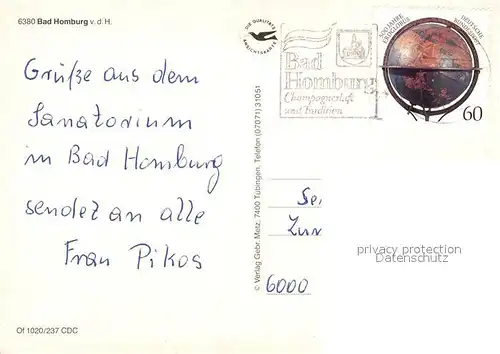 6380 Bad Homburg v. d. H.
Grüße aus dem
Sanatorium
in Bad Homburg
sendet an alle
Frau Pikos
Of 1020/237 CDC
© Verlag Gebr. Metz, 7400 Tübingen, Telefon (07071) 31051
DIE QUALITÄTS
ANSICHTSKARTE
Bad
Homburg
Champagnerluft
und Tradition
500 JAHRE
ERDGLOBUS
DEUTSCHE
BUNDESPOST
60
6000
privacy protection
Datenschutz